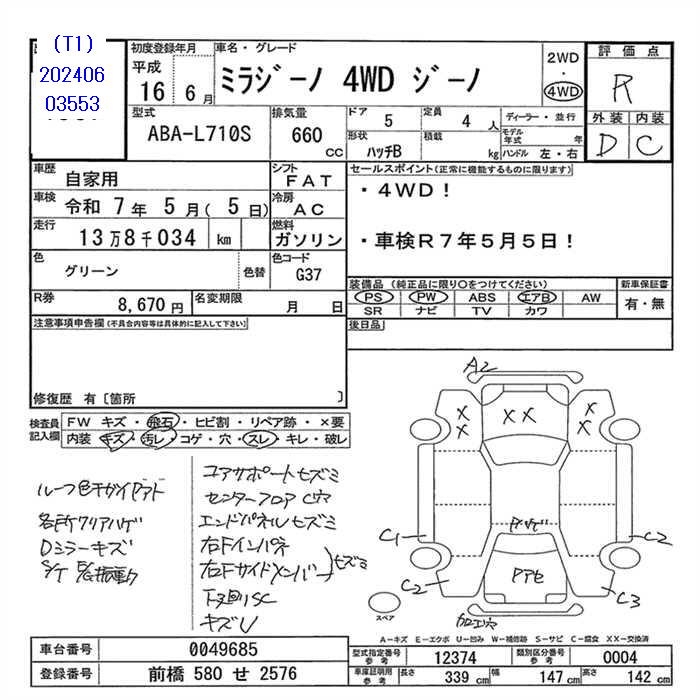 (T1)
202406
03553
初度登録年月 車名・グレード
平成
16 6月 ミラジーノ 4WD ジーノ
2WD
・
4WD
評価点
R
外装 内装
D C
型式
ABA-L710S
排気量
660
CC
ドア 5
定員 4 人
形状 ハッチB
積載 kg
ディーラー・並行
モデル年式 年
ハンドル 左・右
車歴 自家用
シフト FAT
セールスポイント(正常に機能するものに限ります)
・4WD!
・車検R7年5月5日!
車検 令和 7年 5月(5日)
冷房 AC
走行 13万8千034 km
燃料 ガソリン
色 グリーン 色替
色コード G37
装備品(純正品に限り○をつけてください)
新車保証書
有・無
PS PW ABS エアB AW
SR ナビ TV カワ
R券 8,670円 名変期限 月 日
後日品
注意事項申告欄(不具合内容等は具体的に記入して下さい)
修復歴 有〔箇所 〕
検査員記入欄
FW キズ・飛石・ヒビ割・リペア跡・×要
内装 キズ・汚レ・コゲ・穴・スレ・キレ・破レ
各所クリアハゲ
Dミラーキズ
コアサポートヒズミ
センターフロア C穴
エンドパネルヒズミ
右Fインパネ
右Fサイドメンバー
ヒズミ
下廻りSC
キズU
A2
XX
C1
C2
C2
C3
スペア
A-キズ E-エクボ U-凹み W-補修跡 S-サビ C-腐食 XX-交換済
車台番号 0049685
型式指定番号 参考 12374
類別区分番号 参考 0004
登録番号 前橋 580 せ 2576
車庫証明用 参考
長さ 339 cm
幅 147 cm
高さ 142 cm